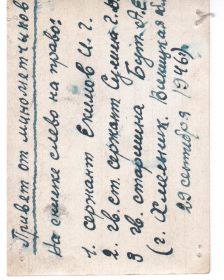 Привет от минометчиков
На снимке слево на право:
1. сержант Екимов И. г.
2. гв. ст. сержант
3 гв старшина Бут А.Е.
(г. Хмельник. Винницкая
29 сентября 1946г)